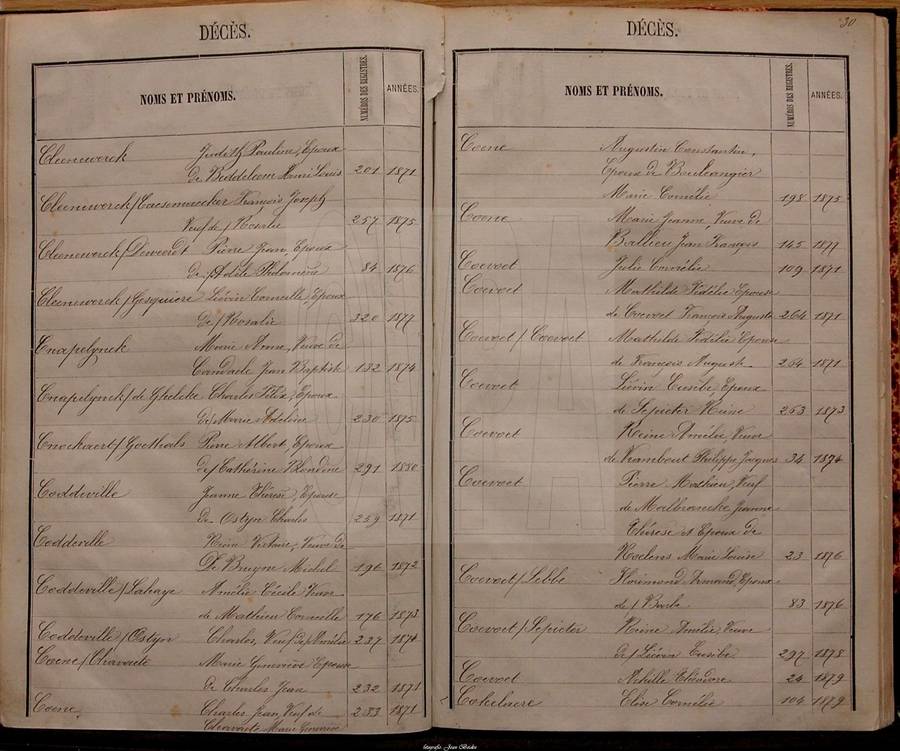 DÉCÈS.
NOMS ET PRÉNOMS. NUMÉROS DES REGISTRES. ANNÉES.
Cleenewerck Judith Pauline, Epouse
De Beddeleem Henri Louis 201 1871
Cleenewerck/Caesemaecker François Joseph
Veuf de/Rosalie 257 1875
Cleenewerck/Dewerdt Pierre Jean, Epoux
De/Adèle Philomène 84 1876
Cleenewerck/Gesquiere Liévin Corneille, Epoux
De/Rosalie 320 1877
Cnapelynck Marie Anne, Veuve de
Candaele Jean Baptiste 132 1874
Cnapelynck/de Gheleke Charles Félix, Epoux
de/Marie Adeline 230 1875
Cnockaert/Goethals Pierre Albert, Epoux
de/Cathérine Blondine 291 1880
Coddeville Jeanne Thérèse, Epouse
De Ostyn Charles 259 1871
Coddeville Reine Victoire, Veuve de
De Bruyne Michel 196 1872
Coddeville/Lahaye Amélie Cécile Veuve
de Mathieu Corneille 176 1873
Coddeville/Ostyn Charles, Veuf de/Amélie 237 1874
Coene/Chavaete Marie Geneviève Epouse
De Charles Jean 232 1871
Coene Charles Jean, Veuf de 283 1871
Chavaete Marie Geneviève
30
DÉCÈS.
NOMS ET PRÉNOMS. NUMÉROS DES REGISTRES. ANNÉES.
Coene Augustin Constantin,
Epoux de Boulcangier
Marie Cornélie 198 1875
Coene Marie Jeanne, Veuve de
Ballieu Jean François 145 1877
Coevoet Julie Cornélie 109 1871
Coevoet Mathilde Fidélie Epouse
de Coevoet François Auguste 264 1871
Coevoet/Coevoet Mathilde Fidélie Epouse
de François Auguste 264 1871
Coevoet Liévin Eusèbe, Epoux
de Sepieter Reine 263 1873
Coevoet Reine Amélie, Veuve
de Wambout Philippe Jacques 34 1874
Coevoet Pierre Mathieu, Veuf
de Malbrancke Jeanne
Thérèse et Epoux de
Roelens Marie Louise 23 1876
Coevoet/Lebbe Florimond Armand, Epoux
de/Barbe 83 1876
Coevoet/Sepieter Reine Amélie Veuve
de/Liévin Eusèbe 297 1878
Coevoet Achille Théodore 24 1879
Cokelaere Elise Cornélie 104 1879